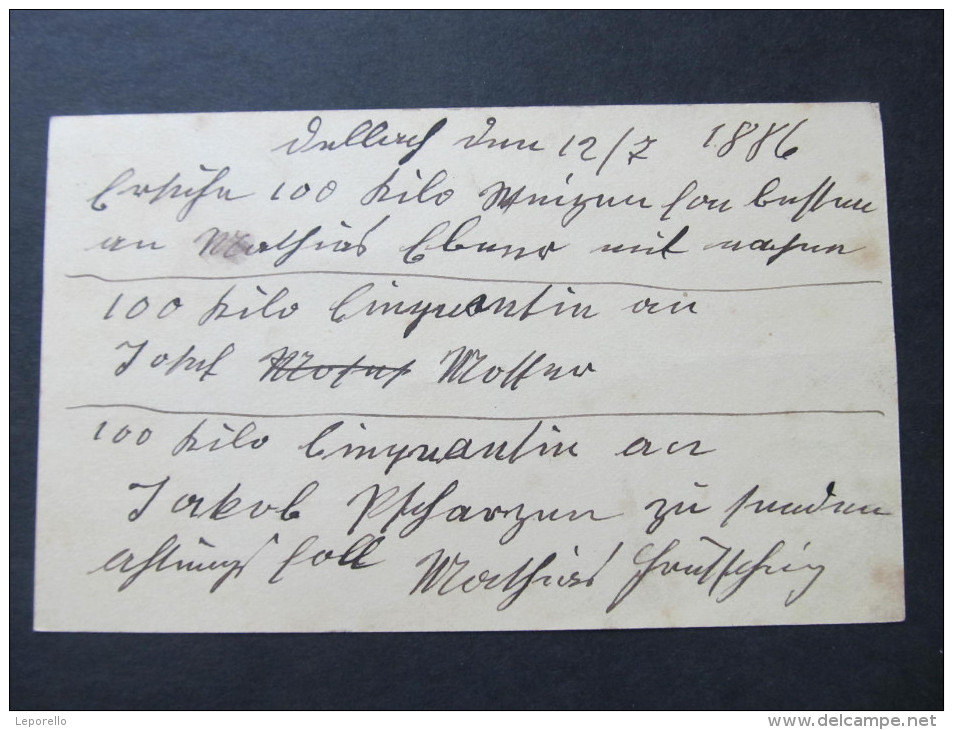 Dellach den 12/7 1886
Ersuche 100 Kilo Weizen fon besten
an Mathias Ebner mit nahme
100 Kilo Cinquantin an
Josef Moser
100 Kilo Cinquantin an
Jakob zu senden
achtungsfoll Mathias
Leporello
www.delcampe.net